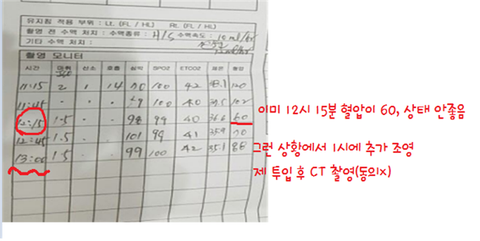 유치침 적용 부위 : Lt. (FL / HL)   Rt. (FL / HL)
촬영 전 수액 처치 : 수액종류 : H/S 수액속도 : 10 ml/hr
기타 수액 처치 :
촬영 모니터
시간 마취 산소 호흡 심박 SPO2 ETCO2 체온 혈압
11:15 2 1 14 100 42 120
11:45 100 40 102
12:15 1.5 98 99 40 60
12:45 1.5 101 99 41 70
13:00 1.5 99 100 42 88
이미 12시 15분 혈압이 60, 상태 안좋음
그런 상황에서 1시에 추가 조영
제 투입 후 CT 촬영(동의x)